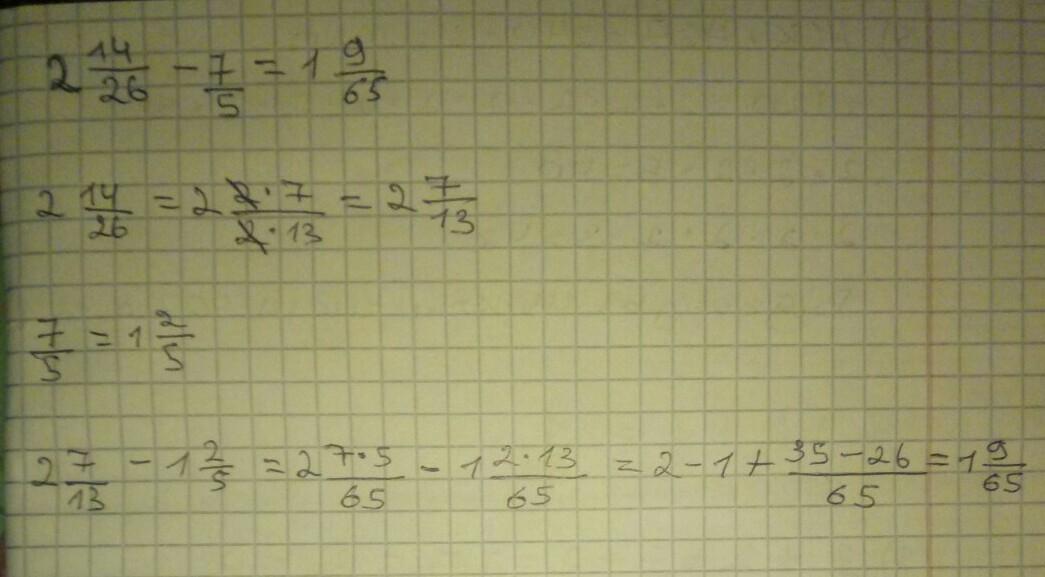 2 14/26 - 7/5 = 1 9/65
2 14/26 = 2 2·7/2·13 = 2 7/13
7/5 = 1 2/5
2 7/13 - 1 2/5 = 2 7·5/65 - 1 2·13/65 = 2 - 1 + 35-26/65 = 1 9/65